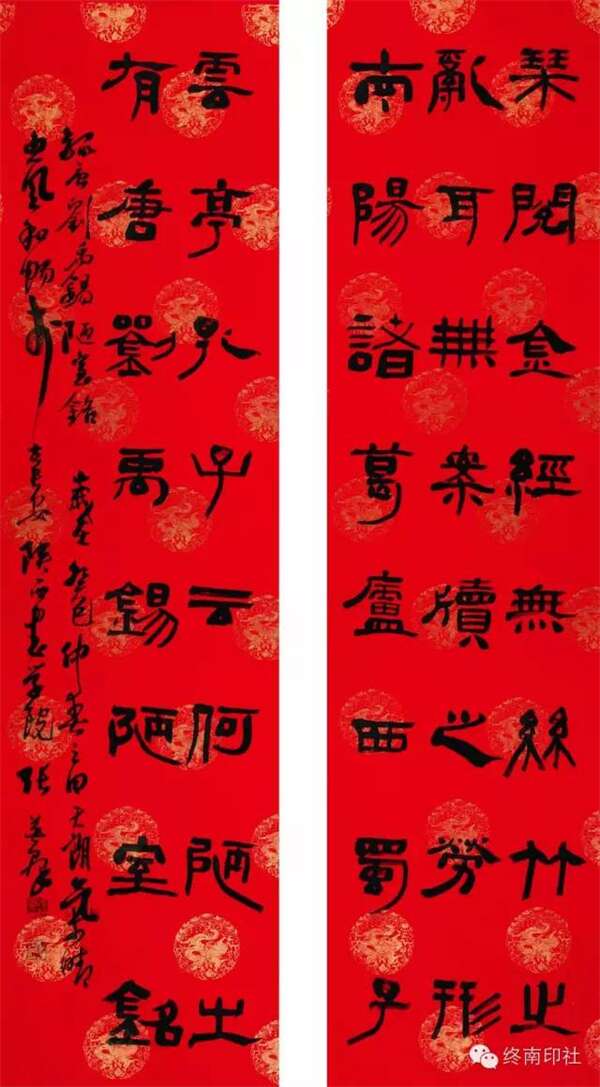 琹閱金經無絲竹之
亂耳無案牘之勞形
南陽諸葛廬西蜀子
雲亭孔子云何陋之
有唐劉禹錫陋室銘
錄唐劉禹錫陋室銘 歲在癸巳仲春之日天朗氣晴
惠風和暢於長安陝西書學院張
终南印社